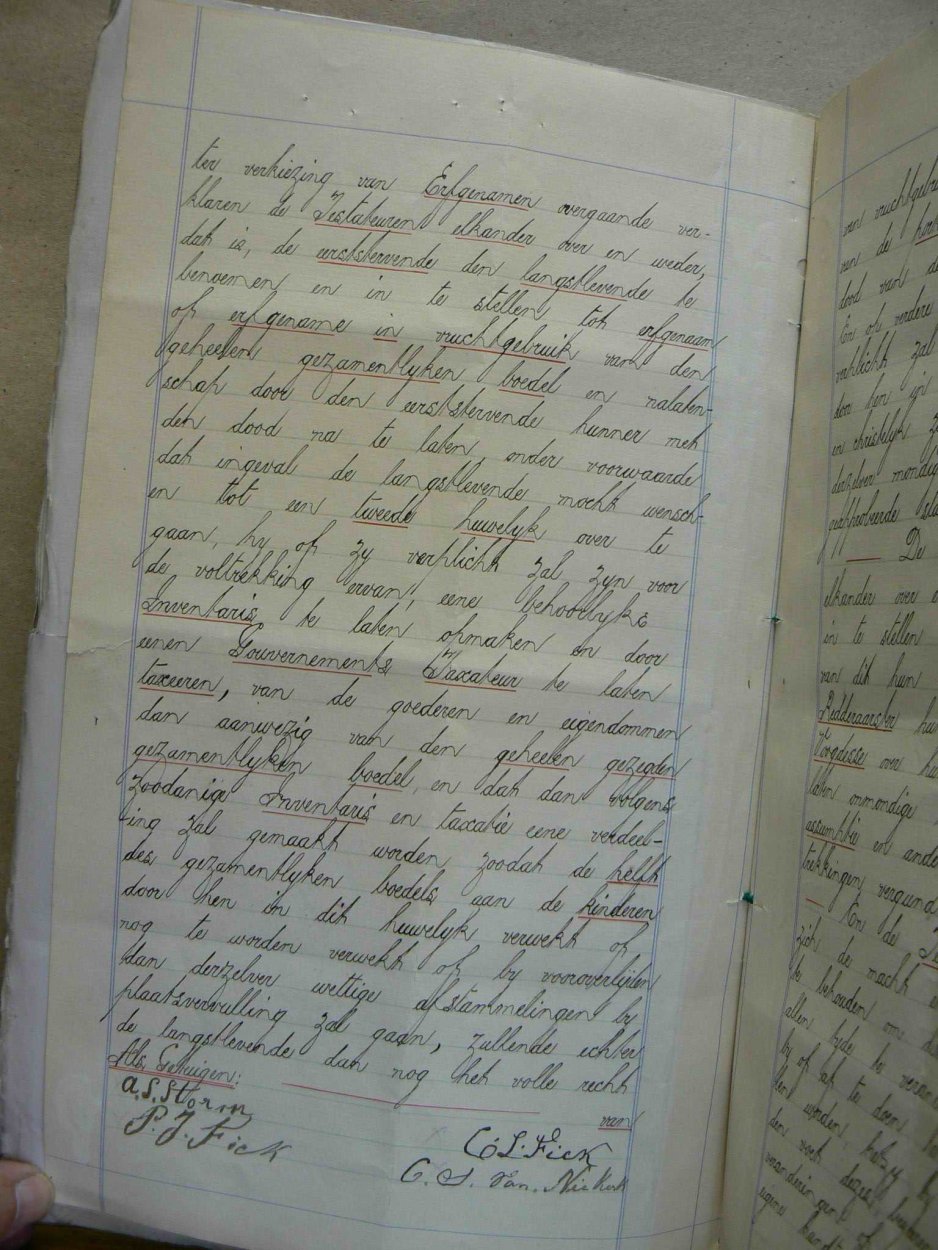 ter verkiezing van Erfgenamen overgaande ver-
klaren de Testateuren elkander over en weder,
dat is, de eerststervende den langstlevende te
benoemen en in te stellen tot erfgenaam
of erfgename in vruchtgebruik van den
geheelen gezamentlyken boedel en nalaten-
schap door den eerststervende hunner met
den dood na te laten, onder voorwaarde
dat ingeval de langstlevende mocht wensch-
en tot een tweede huwelyk over te
gaan, hy of zy verplicht zal zyn voor
de voltrekking ervan, eene behoorlyke
Inventaris te laten opmaken en door
eenen Gouvernements Taxateur te laten
taxeeren, van de goederen en eigendommen
dan aanwezig van den geheelen gezegden
gezamentlyken boedel, en dat dan volgens
zoodanige Inventaris en taxatie eene verdeel-
ing zal gemaakt worden, zoodat de helft
des gezamentlyken boedels aan de kinderen
door hen in dit huwelyk verwekt of
nog te worden verwekt of by vooroverlijden
dan derzelver wettige afstammelingen by
plaatsvervulling zal gaan, zullende echter
de langstlevende dan nog het volle recht
van
Als Getuigen:
A.S. Storm
P.J. Fick
C.L. Fick
C. S. Van. Niekerk
van vruchtgebru
van de
dood van de
En of verdere
verplicht zal
door hen in
en christelyk
derzelver mondig
geapprobeerde sta
De
elkander over e
in te stellen
van dit hun
Redderaarster hu
Voogdesse over
laten onmondige
assumptie en ande
trekkingen, vergund
En de Te
zich de macht
te behouden om
allen tyde te veran
by of af te doen
worden, hetzy